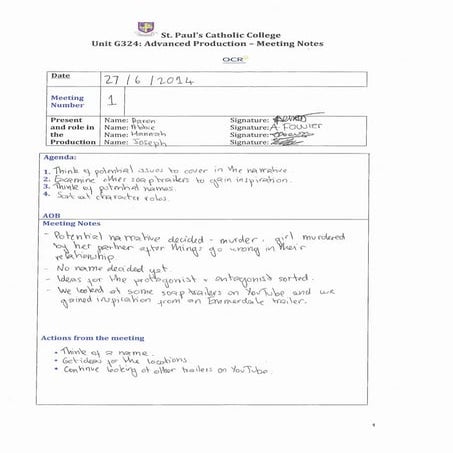 St. Paul's Catholic College
Unit G324: Advanced Production – Meeting Notes
OCR
Date 27 / 6 / 2014
Meeting Number 1
Present and role in the Production
Name: Signature:
Name: Abbie Signature: A Fournier
Name: Hannah Signature:
Name: Joseph Signature:
Agenda:
1. Think of potential issues to cover in the narrative.
2. Examine other soap trailers to gain inspiration.
3. Think of potential names.
4. Sort out character roles.
AOB
Meeting Notes
- Potential narrative decided - murder. girl murdered
by her partner after things go wrong in their
relationship
- No name decided yet.
- Ideas for the protagonist + antagonist sorted.
- We looked at some soap trailers on YouTube and we
gained inspiration from an Emmerdale trailer.
Actions from the meeting
• Think of a name.
• Get ideas for the locations
• Continue looking at other trailers on YouTube.